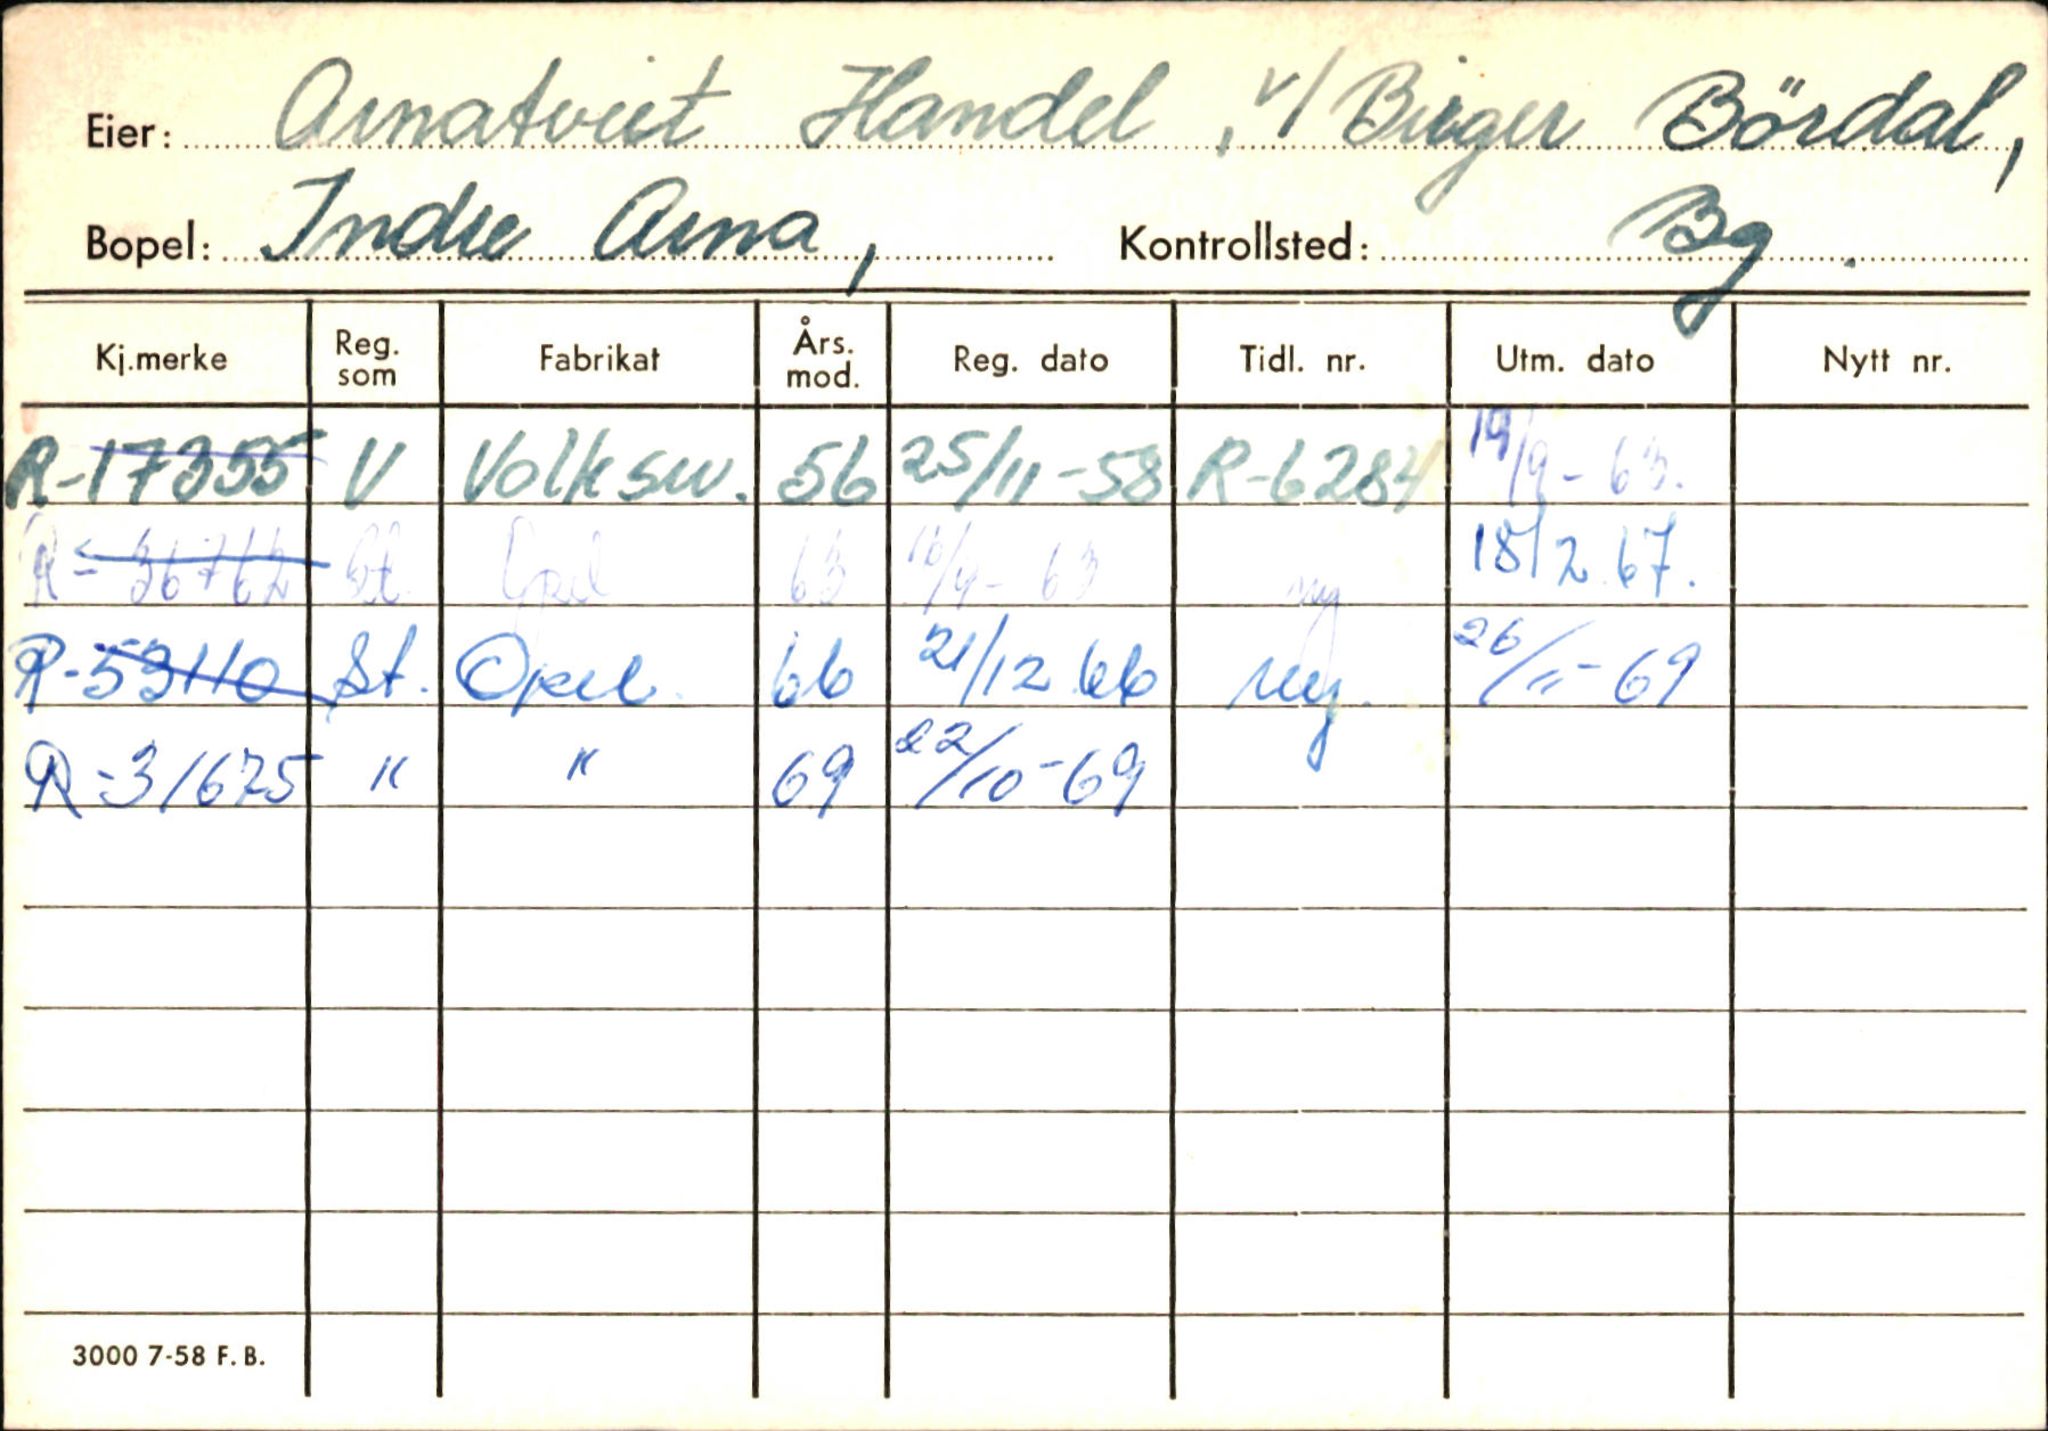 Eier: Arnatveit Handel, v/ Birger Bördal,
Bopel: Indre Arna, Kontrollsted: Bg.
Kj.merke Reg. som Fabrikat Års. mod. Reg. dato Tidl. nr. Utm. dato Nytt nr.
R-17355 V Volksw. 56 25/11-58 R-6284 19/9-63.
R-36762 St. Opel 63 /9-63 ny 18/2 67.
R-53110 St. Opel. 66 21/12 66 ny. 26/11-69
R-31675 " " 69 22/10-69
3000 7-58 F.B.